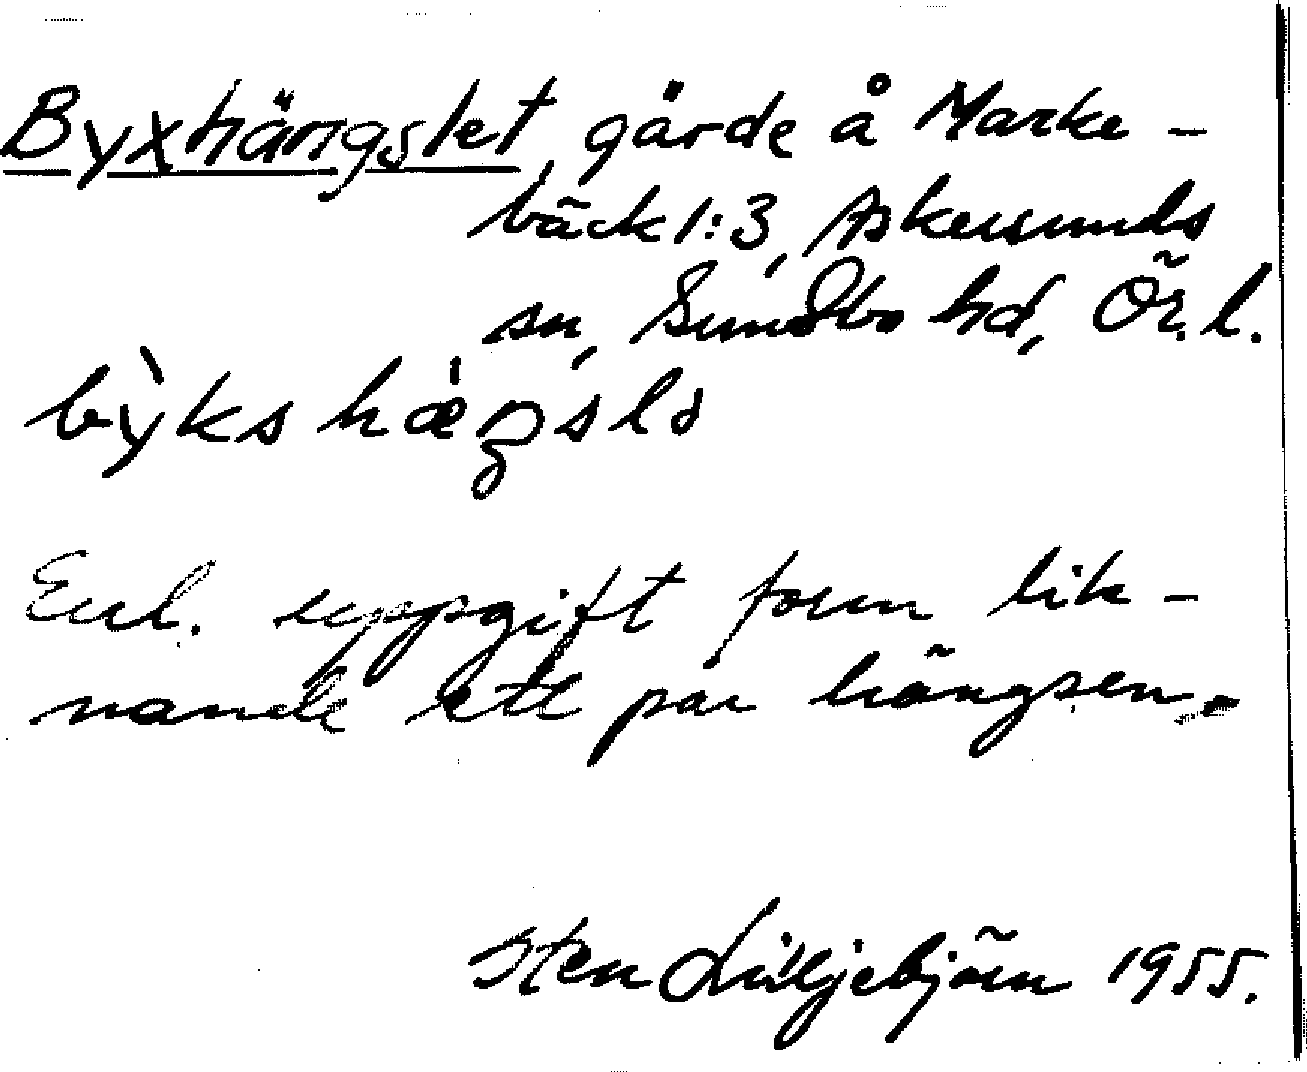 Byxhängslet, gärde å Marke-
bäck 1:3, Askersunds
sn, Sundbo hd, Ör. l.
bỳkshæ̀ŋslə
Enl. uppgift form lik-
nande ett par hängslen.
Sten Liljebjörn 1955.